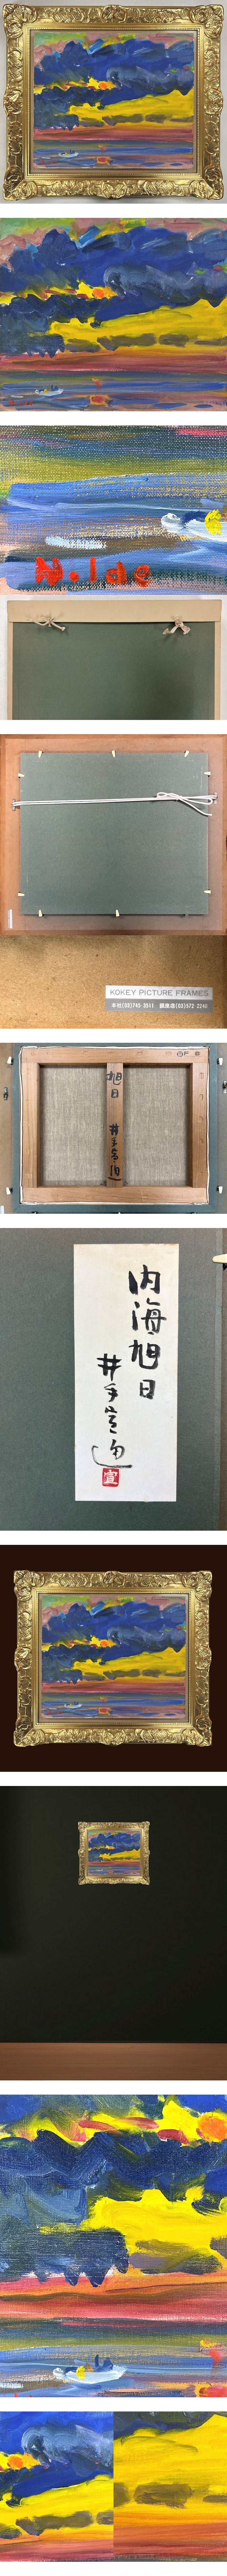 N.Ide
KOKEY PICTURE FRAMES
本社(03)743-3511 銀座店(03)572-2240
旭日
井手宣通
内海旭日
井手宣通